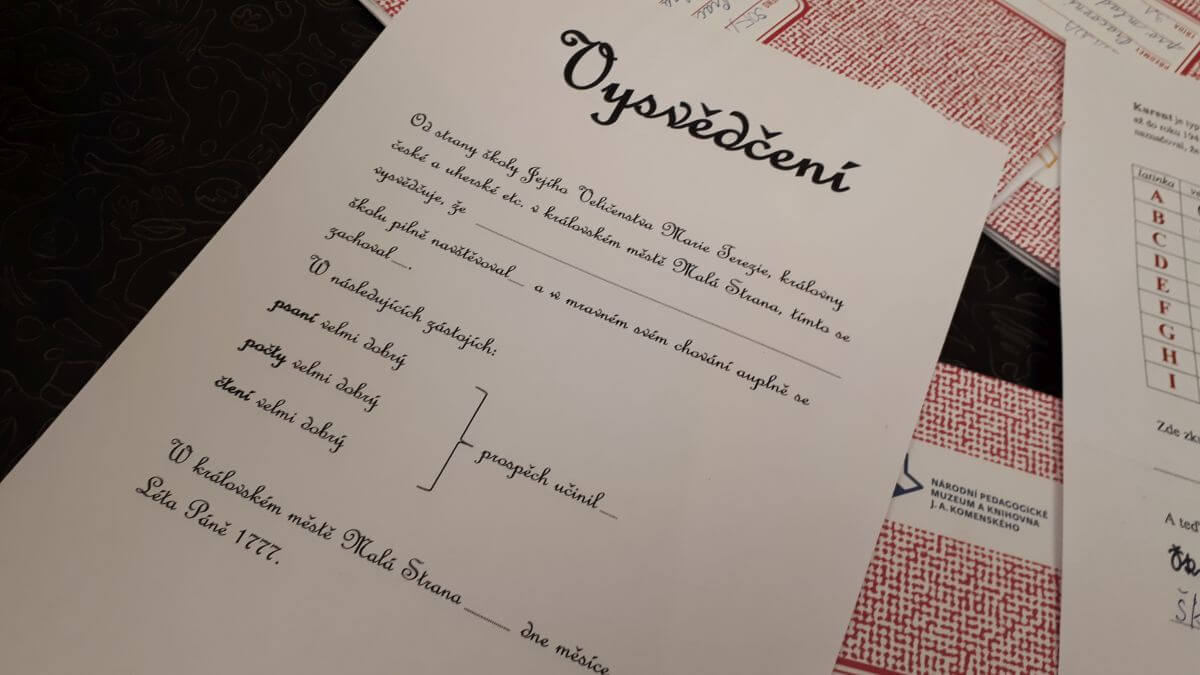 Vysvědčení
Od strany školy Jejího Veličenstva Marie Terezie, královny
české a uherské etc. v královském městě Malá Strana, tímto se
vysvědčuje, že
školu pilně navštěvoval__ a w mravném svém chování auplně se
zachoval__.
W následujících zástojích:
psaní velmi dobrý
počty velmi dobrý
čtení velmi dobrý
prospěch učinil__
W královském městě Malá Strana____ dne měsíce
Léta Páně 1777.
NÁRODNÍ PEDAGOGICKÉ
MUZEUM A KNIHOVNA
J. A. KOMENSKÉHO
PŘEDMĚT
TŘÍDA
Kurent je typ
až do roku 194
latinka
A
B
C
D
E
F
G
H
I
Zde zku
A teď